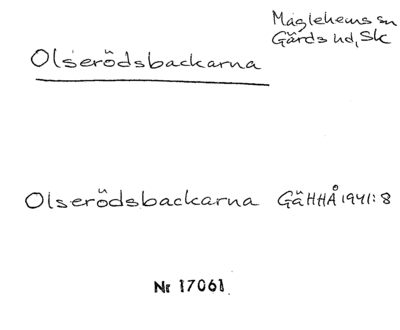 Maglehems sn
Gärds hd, Sk
Olserödsbackarna
Olserödsbackarna GäHHÅ 1941:8
Nr 17061